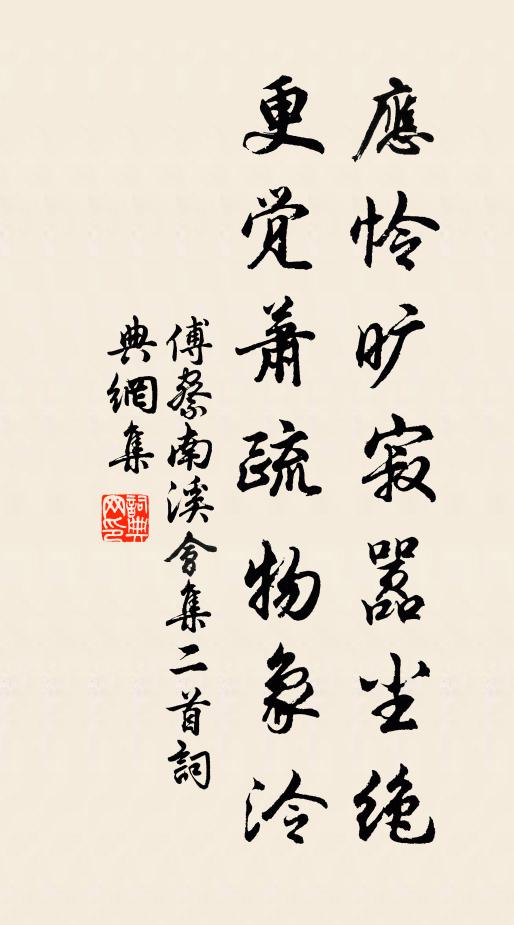 應怜旷寂嚣尘绝
更觉蕭疏物象泠
傅察南溪會集二首詞
典網集
詞典网印